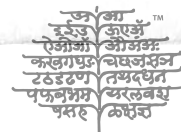 अ आ TM
इईउ ऊएऍ
ऐऑओ औअंअः
कखगघङ चछजझञ
टठडढण तथदधन
पफबभम यरलवश
षसह ळक्षज्ञ